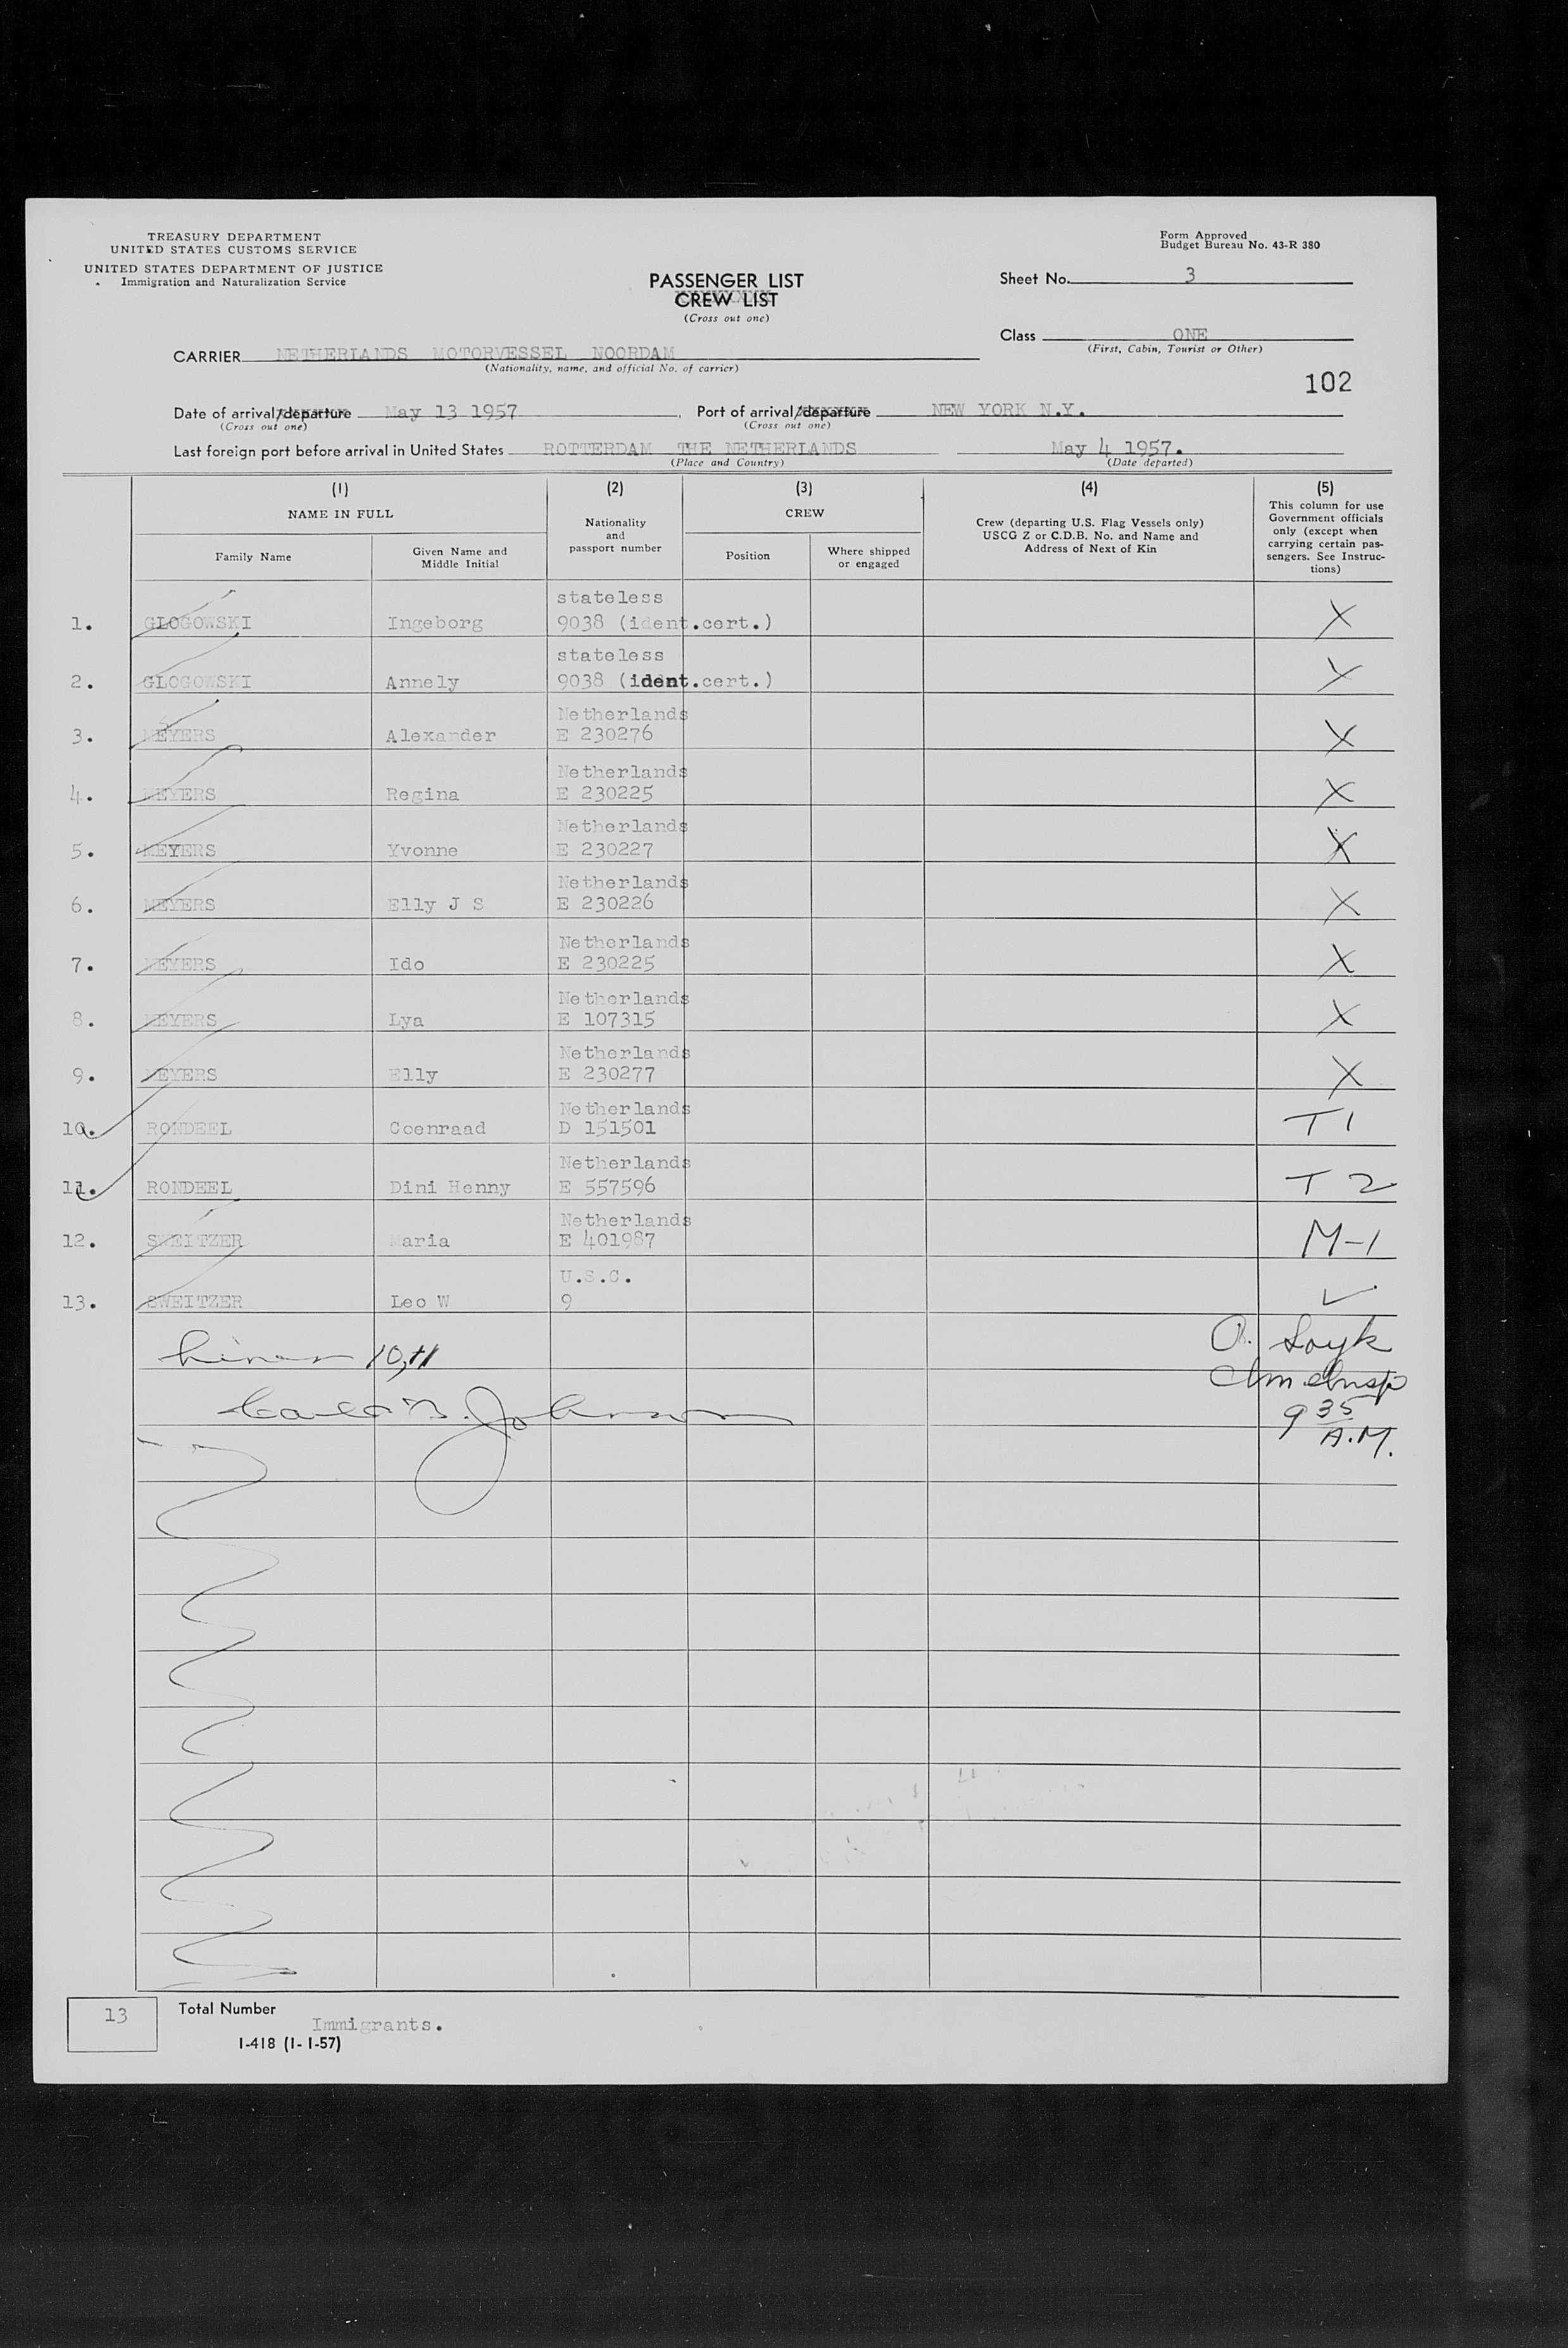 TREASURY DEPARTMENT
UNITED STATES CUSTOMS SERVICE
UNITED STATES DEPARTMENT OF JUSTICE
Immigration and Naturalization Service
Form Approved
Budget Bureau No. 43-R 380
PASSENGER LIST
CREW LIST
(Cross out one)
Sheet No. 3
Class ONE
(First, Cabin, Tourist or Other)
CARRIER NETHERLANDS MOTORVESSEL NOORDAM
(Nationality, name, and official No. of carrier)
102
Date of arrival/departure May 13 1957. Port of arrival/departure NEW YORK N.Y.
(Cross out one) (Cross out one)
Last foreign port before arrival in United States ROTTERDAM THE NETHERLANDS May 4 1957.
(Place and Country) (Date departed)
(1) (2) (3) (4) (5)
NAME IN FULL
Family Name
Given Name and
Middle Initial
Nationality
and
passport number
CREW
Position
Where shipped
or engaged
Crew (departing U.S. Flag Vessels only)
USCG Z or C.D.B. No. and Name and
Address of Next of Kin
This column for use
Government officials
only (except when
carrying certain pas-
sengers. See Instruc-
tions)
stateless
1. GLOGOWSKI Ingeborg 9038 (ident.cert.) X
stateless
2. GLOGOWSKI Annely 9038 (ident.cert.) X
Netherlands
3. MEYERS Alexander E 230276 X
Netherlands
4. MEYERS Regina E 230225 X
Netherlands
5. MEYERS Yvonne E 230227 X
Netherlands
6. MEYERS Elly J S E 230226 X
Netherlands
7. MEYERS Ido E 230225 X
Netherlands
8. MEYERS Lya E 107315 X
Netherlands
9. MEYERS Elly E 230277 X
Netherlands
10. RONDEEL Coenraad D 151501 T 1
Netherlands
11. RONDEEL Dini Henny E 557596 T 2
Netherlands
12. SWEITZER Maria E 401987 M-1
U.S.C.
13. SWEITZER Leo W 9
10, 11
Johnson
Soyk
9 35
A.M.
13 Total Number
Immigrants.
I-418 (1-1-57)